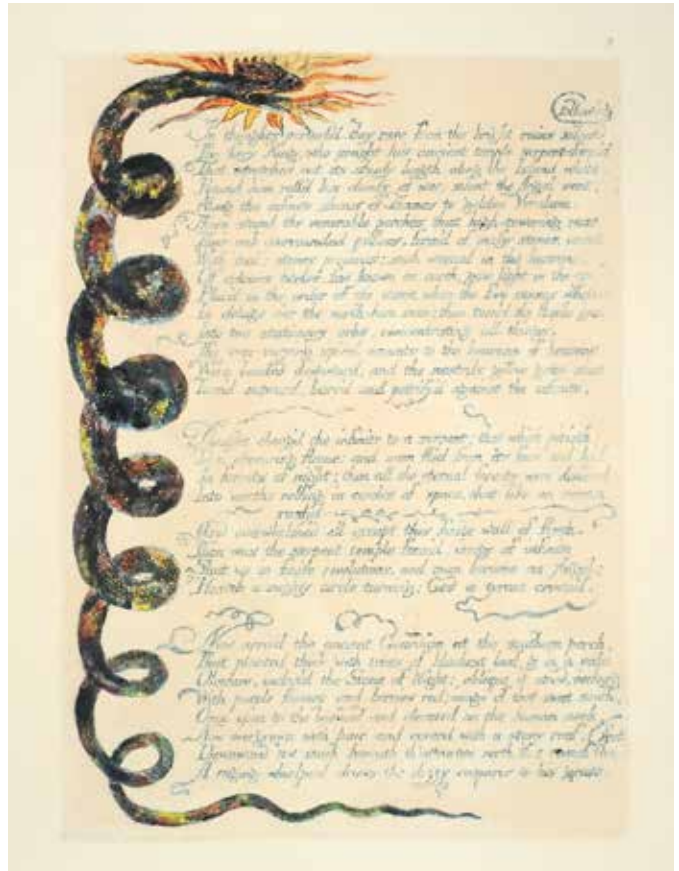 In thoughts perturb'd they rose from the bright ruins silent
The fiery King, who sought his ancient temple serpent-form'd
That stretches out its shady length along the Island white.
Round him roll'd his clouds of war; silent the Angel went,
Along the infinite shores of Thames to golden Verulam.
There stand the venerable porches that high-towering rear
Their oak-surrounded pillars, form'd of massy stones, uncut
With tool; stones precious; such eternal in the heavens,
Of colours twelve, few known on earth, give light in the
Plac'd in the order of the stars, when the five senses whelm'd
In deluge o'er the earth-born man; then turn'd the fluxile eyes
Into two stationary orbs, concentrating all things.
The ever-varying spiral ascents to the heavens of heavens
Were bended downward, and the nostrils golden gates shut
Turn'd outward, barr'd and petrify'd against the infinite.
Thought chang'd the infinite to a serpent; that which pitieth
To a devouring flame; and man fled from its face and hid
In forests of night; then all the eternal forests were divided
Into earths rolling in circles of space, that like an ocean
rush'd
And overwhelmed all except this finite wall of flesh.
Then was the serpent temple form'd, image of infinite
Shut up in finite revolutions, and man became an Angel;
Heaven a mighty circle turning; God a tyrant crown'd.
Now arriv'd the ancient Guardian at the southern porch,
That planted thick with trees of blackest leaf, & in a vale
Obscure, inclos'd the Stone of Night; oblique it stood, o'erhung
With purple flowers and berries red; image of that sweet south,
Once open to the heavens and elevated on the human neck,
Now overgrown with hair and coverd with a stony roof,
Downward 'tis sunk beneath th' attractive north, that round the feet
A raging whirlpool draws the dizzy enquirer to his grave